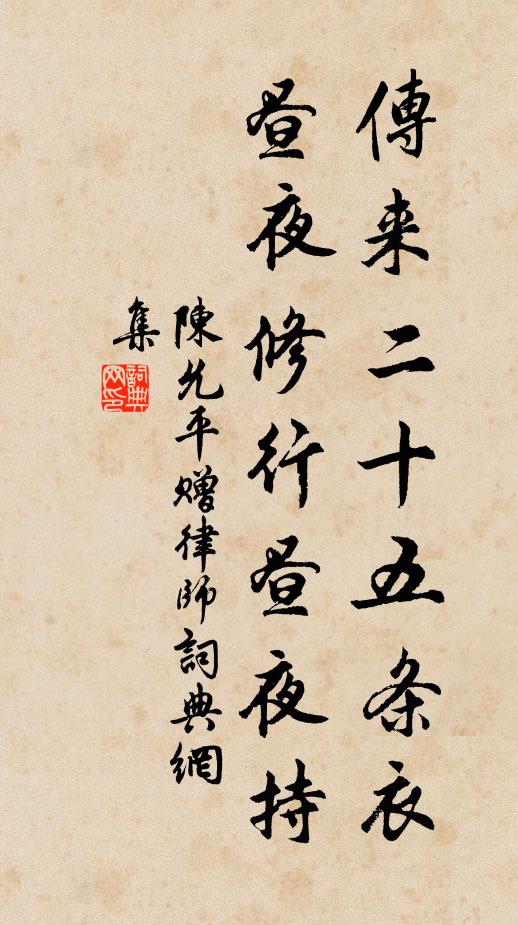 傳来二十五条衣
昼夜修行昼夜持
陳允平贈律師詞典網
集
詞典
网印